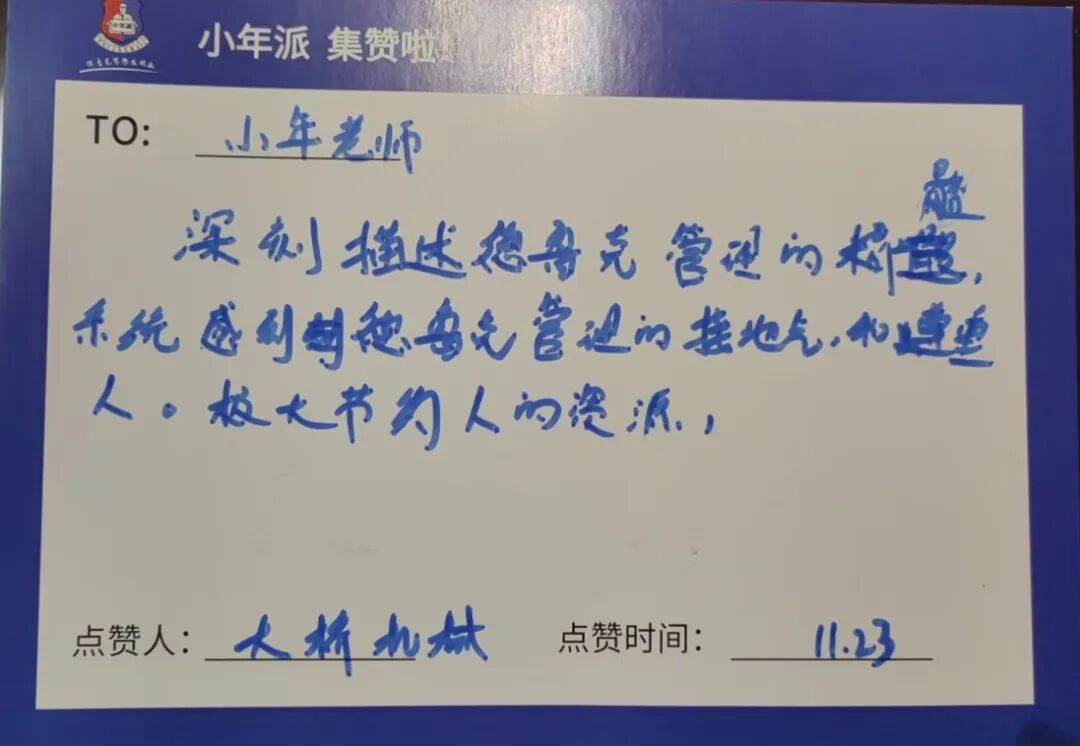 小年派
小年派 集赞啦!
TO: 小年老师
深刻描述德鲁克管理的精髓,
系统感到德鲁克管理的接地气,和尊重
人。极大节约人的资源,
点赞人: 大桥机械 点赞时间: 11.23